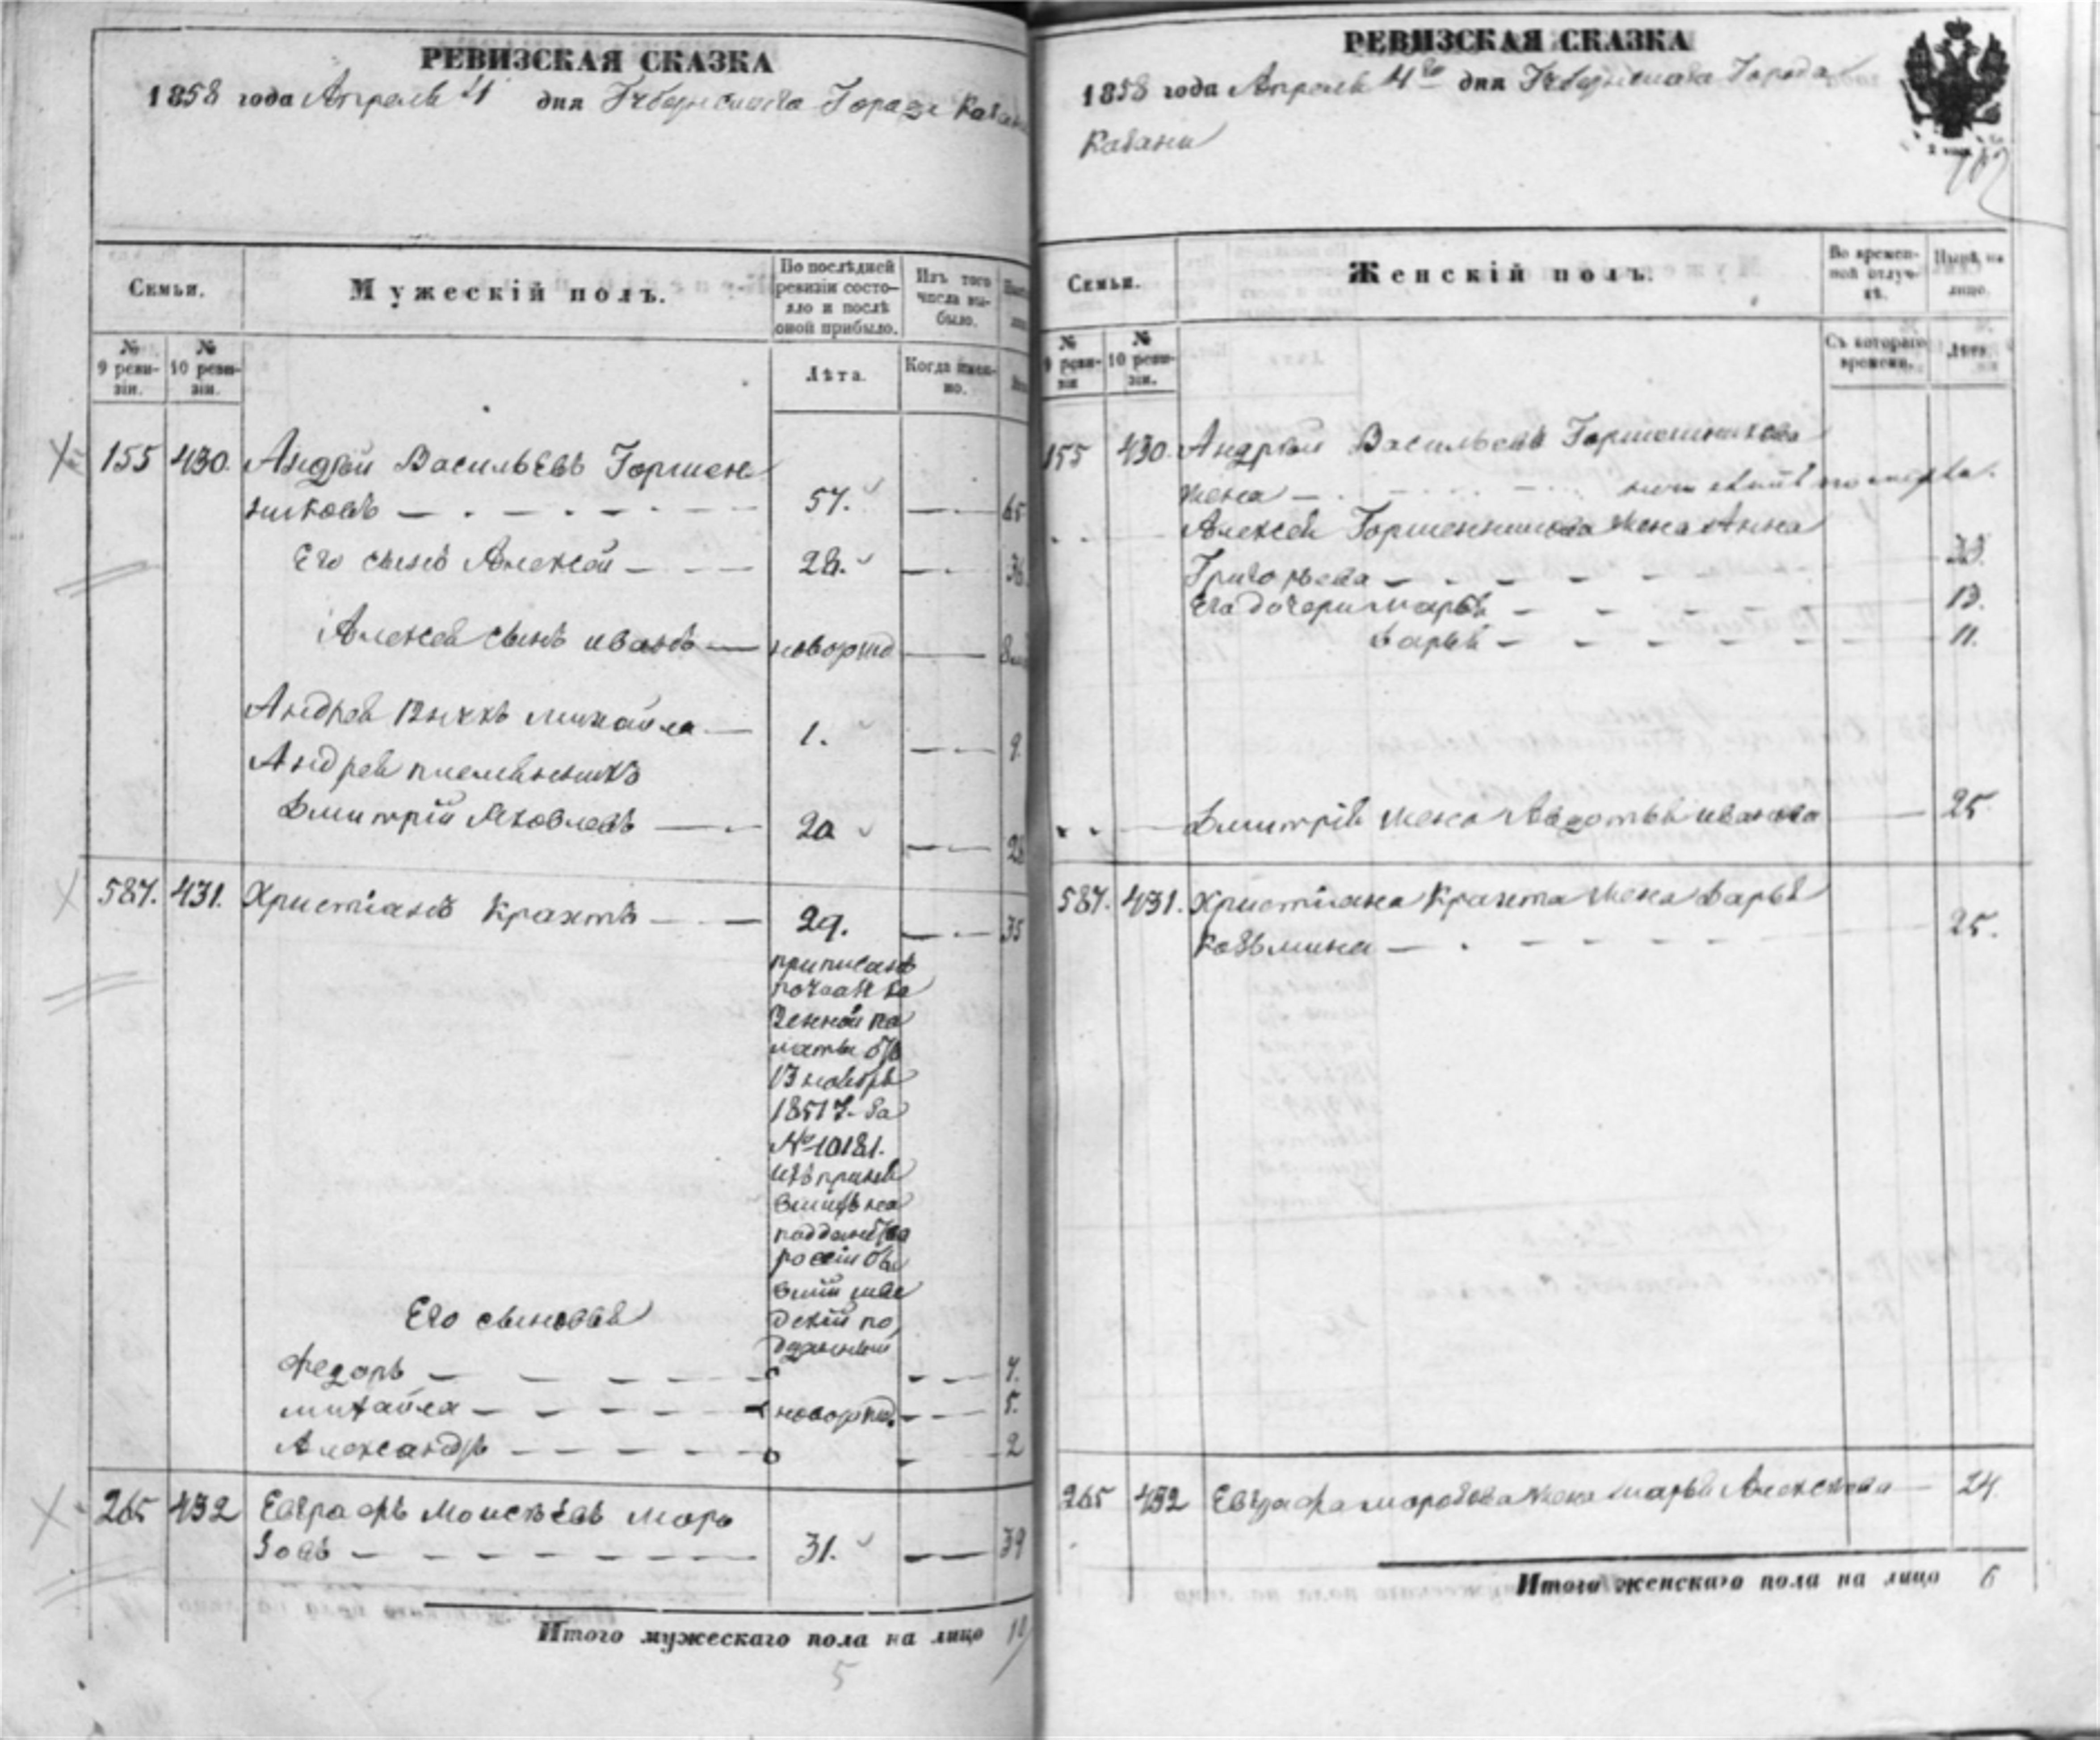 РЕВИЗСКАЯ СКАЗКА
1858 года Апреля 4 дня Губернскаго Города Казани
Семьи.
Мужескій полъ.
По послѣдней ревизіи состояло и послѣ оной прибыло.
Изъ того числа выбыло.
№ 9 ревизіи.
№ 10 ревизіи.
Лѣта.
Когда именно.
155 430. Андрей Васильевъ Горшен
никовъ 57. 65
Его сынъ Алексей 28. 36
Алексея сынъ иванъ новорожд
Андрея внукъ михайла 1. 9
Андрея племянникъ
Дмитрій Яковлевъ 20 28
587. 431. Христіанъ Крахтъ 29. 35
приписанъ
по указу ка
зенной па
латы отъ
13 ноября
1851 г. за
№ 10181.
изъ приняв
шихъ на
подданство
россіи бы
вшій шве
дскій по
дданный
Его сыновья
Федоръ 7.
михайла новорожд. 5.
Александръ 2
265 432 Евграфъ Моисеевъ моро
зовъ 31. 39
Итого мужескаго пола на лицо 10
5
РЕВИЗСКАЯ СКАЗКА
1858 года Апреля 4го дня Губернскаго Города
Казани
Семьи.
Женскій полъ.
Во временной отлучкѣ.
Нынѣ на лицо.
№ 9 ревизіи
№ 10 ревизіи.
Съ котораго времени.
Лѣта.
155 430. Андрея Васильева Горшешникова
жена померла.
Алексея Горшенникова жена Анна
Григорьева 33.
Его дочери марья 13.
Дарья 11.
Дмитрія жена Авдотья иванова 25
587. 431. Христіана Крахта жена Дарья
Козьмина 25.
265 432 Евграфа морозова жена марья Алексеева 24.
Итого женскаго пола на лицо 6